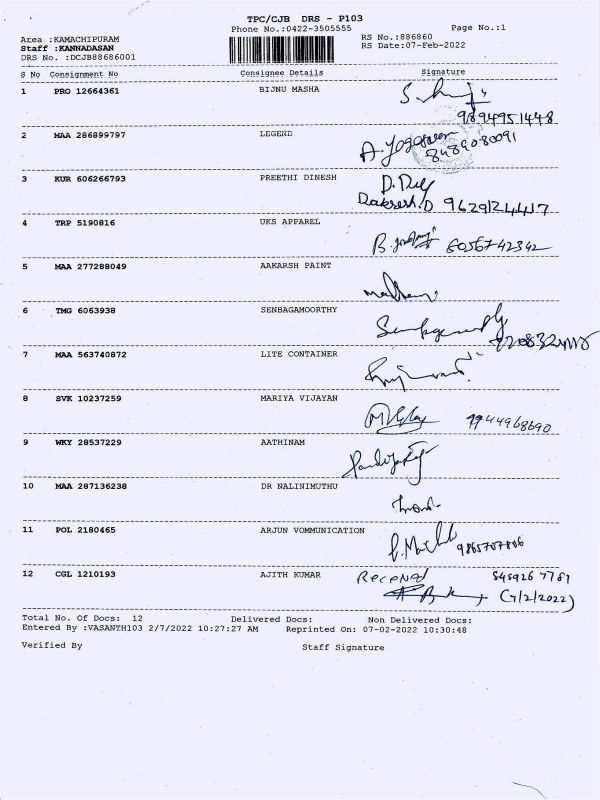 TPC/CJB DRS - P103
Phone No.:0422-3505555 Page No.:1
Area :KAMACHIPURAM RS No.:886860
Staff :KANNADASAN RS Date:07-Feb-2022
DRS No. :DCJB88686001
S No Consignment No Consignee Details Signature
1 PRO 12664361 BIJNU MASHA
9894951448
2 MAA 286899797 LEGEND
8489080091
3 KUR 606266793 PREETHI DINESH
D. 9629124417
4 TRP 5190816 UKS APPAREL
6056742342
5 MAA 277288049 AAKARSH PAINT
6 TMG 6063938 SENBAGAMOORTHY
7 MAA 563740872 LITE CONTAINER
8 SVK 10237259 MARIYA VIJAYAN
9944968690
9 WKY 28537229 AATHINAM
10 MAA 287136238 DR NALINIMUTHU
11 POL 2180465 ARJUN VOMMUNICATION
12 CGL 1210193 AJITH KUMAR Received
(7/2/2022)
Total No. Of Docs: 12 Delivered Docs: Non Delivered Docs:
Entered By :VASANTH103 2/7/2022 10:27:27 AM Reprinted On: 07-02-2022 10:30:48
Verified By Staff Signature